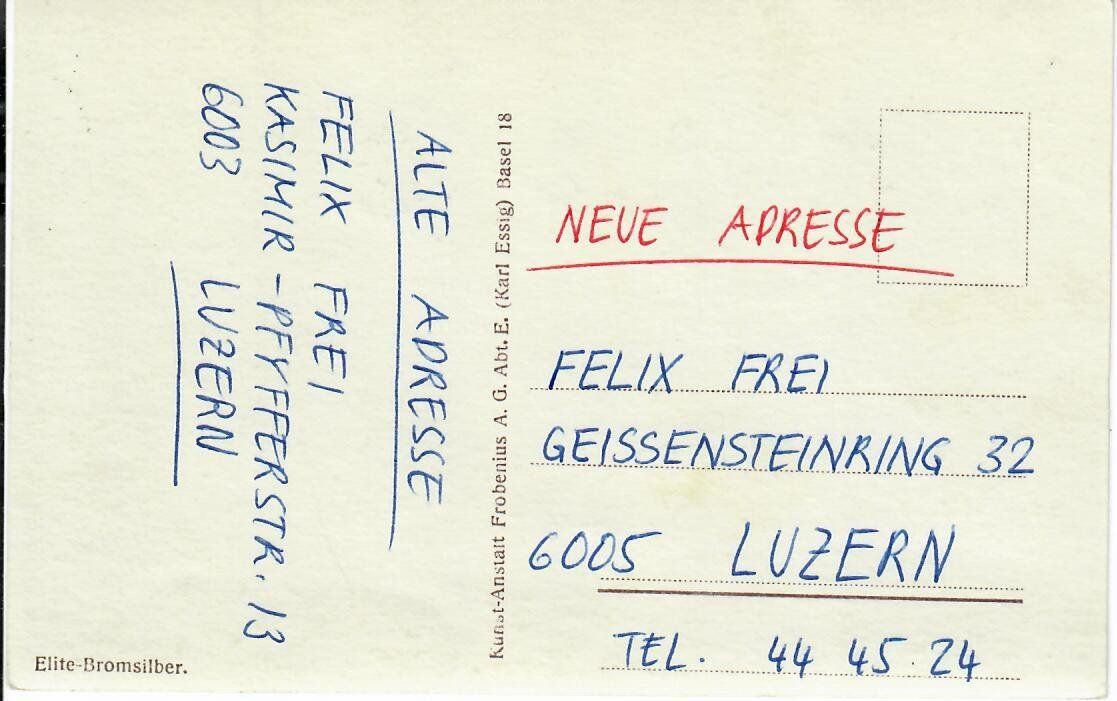 ALTE ADRESSE
FELIX FREI
KASIMIR-PFYFFERSTR. 13
6003 LUZERN
Elite-Bromsilber.
Kunst-Anstalt Frobenius A. G. Abt. E. (Karl Essig) Basel 18
NEUE ADRESSE
FELIX FREI
GEISSENSTEINRING 32
6005 LUZERN
TEL. 44 45.24